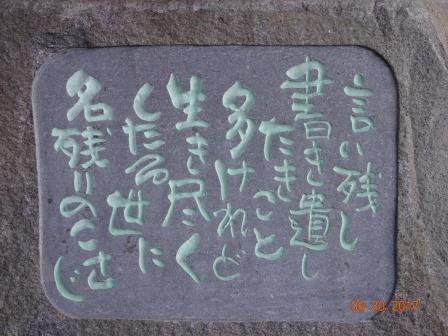 言い残し
書き遺し
たきこと
多けれど
生き尽く
したる世に
名残りのこさじ
06/30/2017